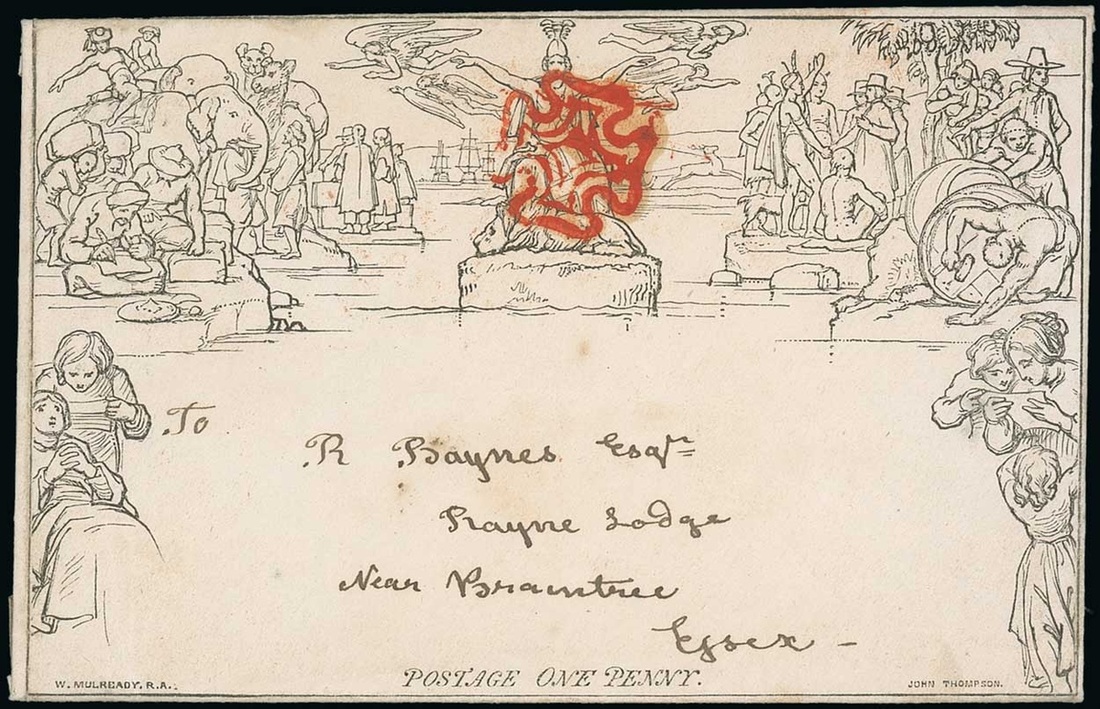 To
R Haynes Esqre
Rayne Lodge
Near Braintree
Essex -
POSTAGE ONE PENNY.
W. MULREADY. R.A.
JOHN THOMPSON.